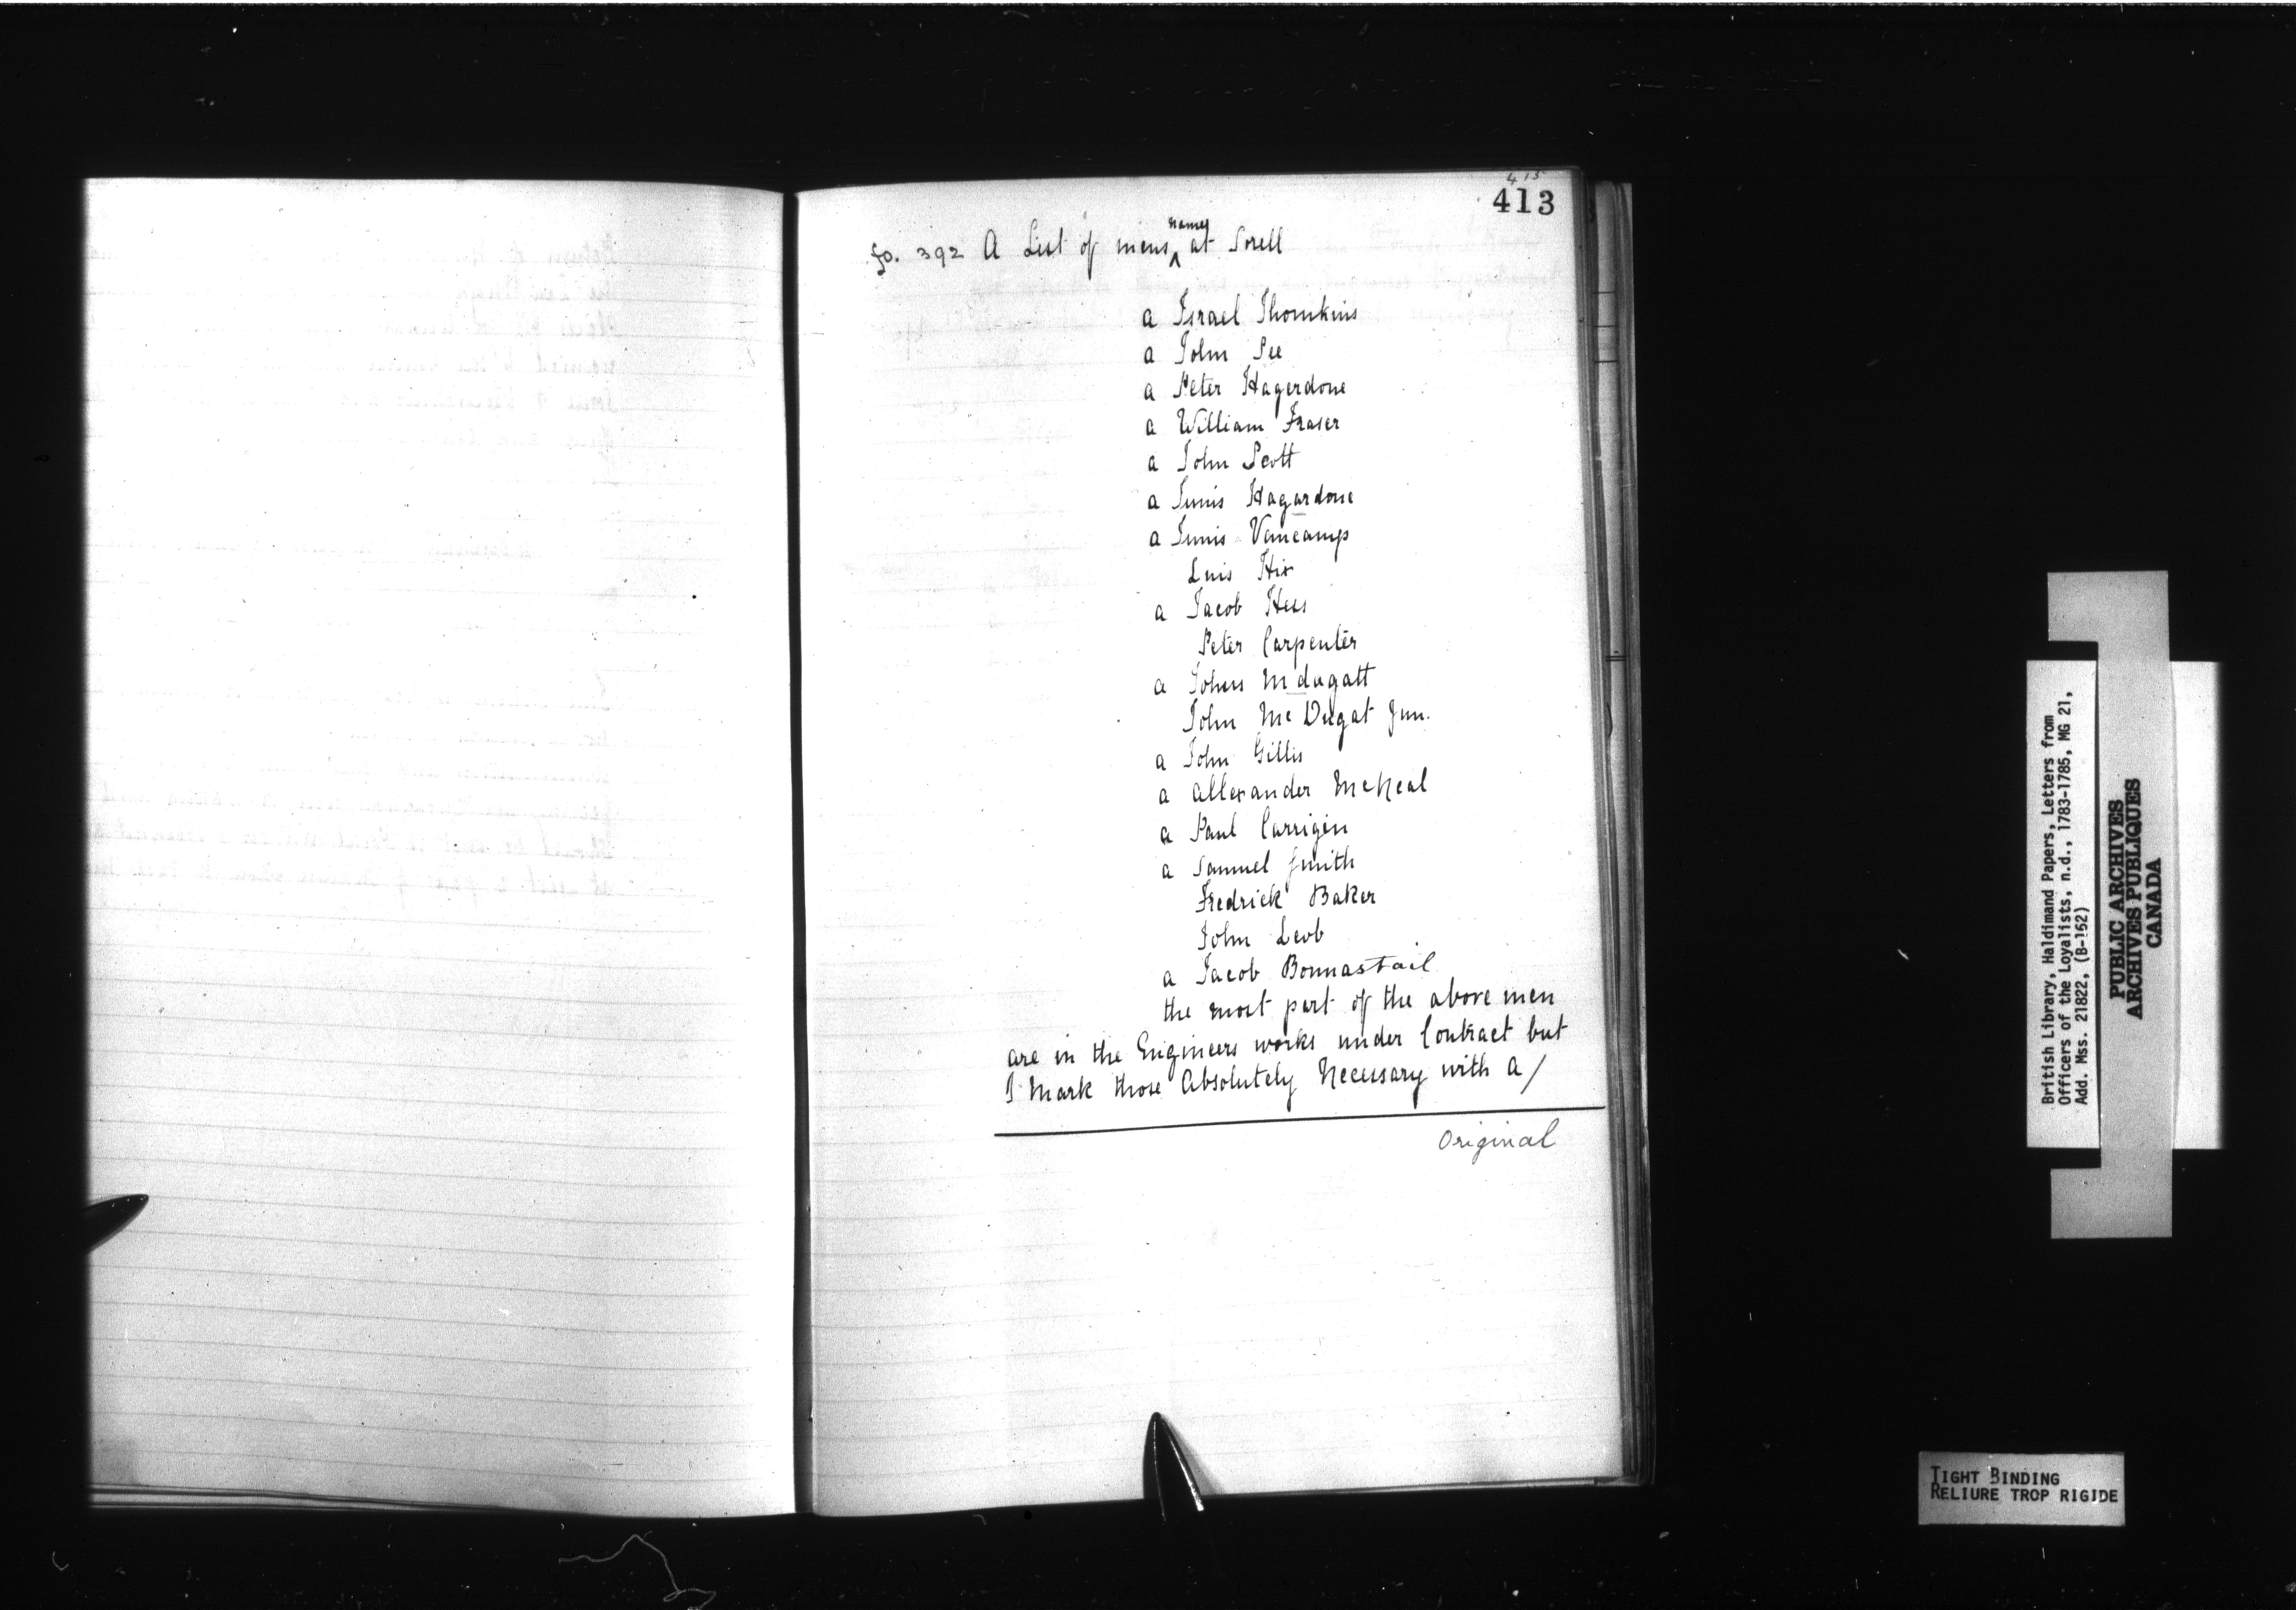 415
413
fo. 392 A List of mens ^names at Sorell
a Israel Thomkins
a John See
a Peter Hagerdone
a William Fraser
a John Scott
a Tunis Hagardone
a Tunis Vancamp
Luis Hix
a Jacob Hess
Peter Carpenter
a Johns Mcdugatt
John Mc Dugat Jun.
a John Gillis
a Allexander McNeal
a Paul Carrigin
a Samuel Smith
Fredrick Baker
John Leob
a Jacob Bonnastail
the most part of the above men
are in the Engineers works under Contract but
I Mark those Absolutely Necessary with a /
Original
British Library, Haldimand Papers, Letters from
Officers of the Loyalists, n.d., 1783-1785, MG 21,
Add. Mss. 21822, (B-152)
PUBLIC ARCHIVES
ARCHIVES PUBLIQUES
CANADA
TIGHT BINDING
RELIURE TROP RIGIDE